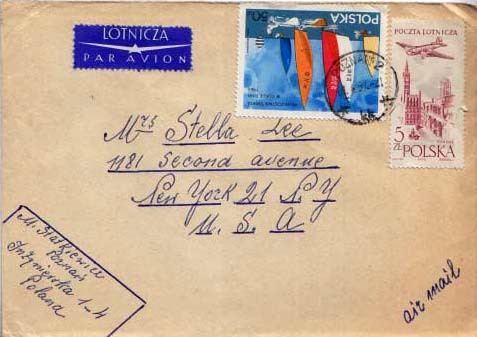 LOTNICZA
PAR AVION
POLSKA
50
POZNAŃ 2
POCZTA LOTNICZA
5
ZŁ
POLSKA
Mrs Stella Lee
1181 Second avenue
New York 21 N.Y
U.S.A
M. Statkiewicz
Poznań
Inżynierska 1-4
Poland
air mail